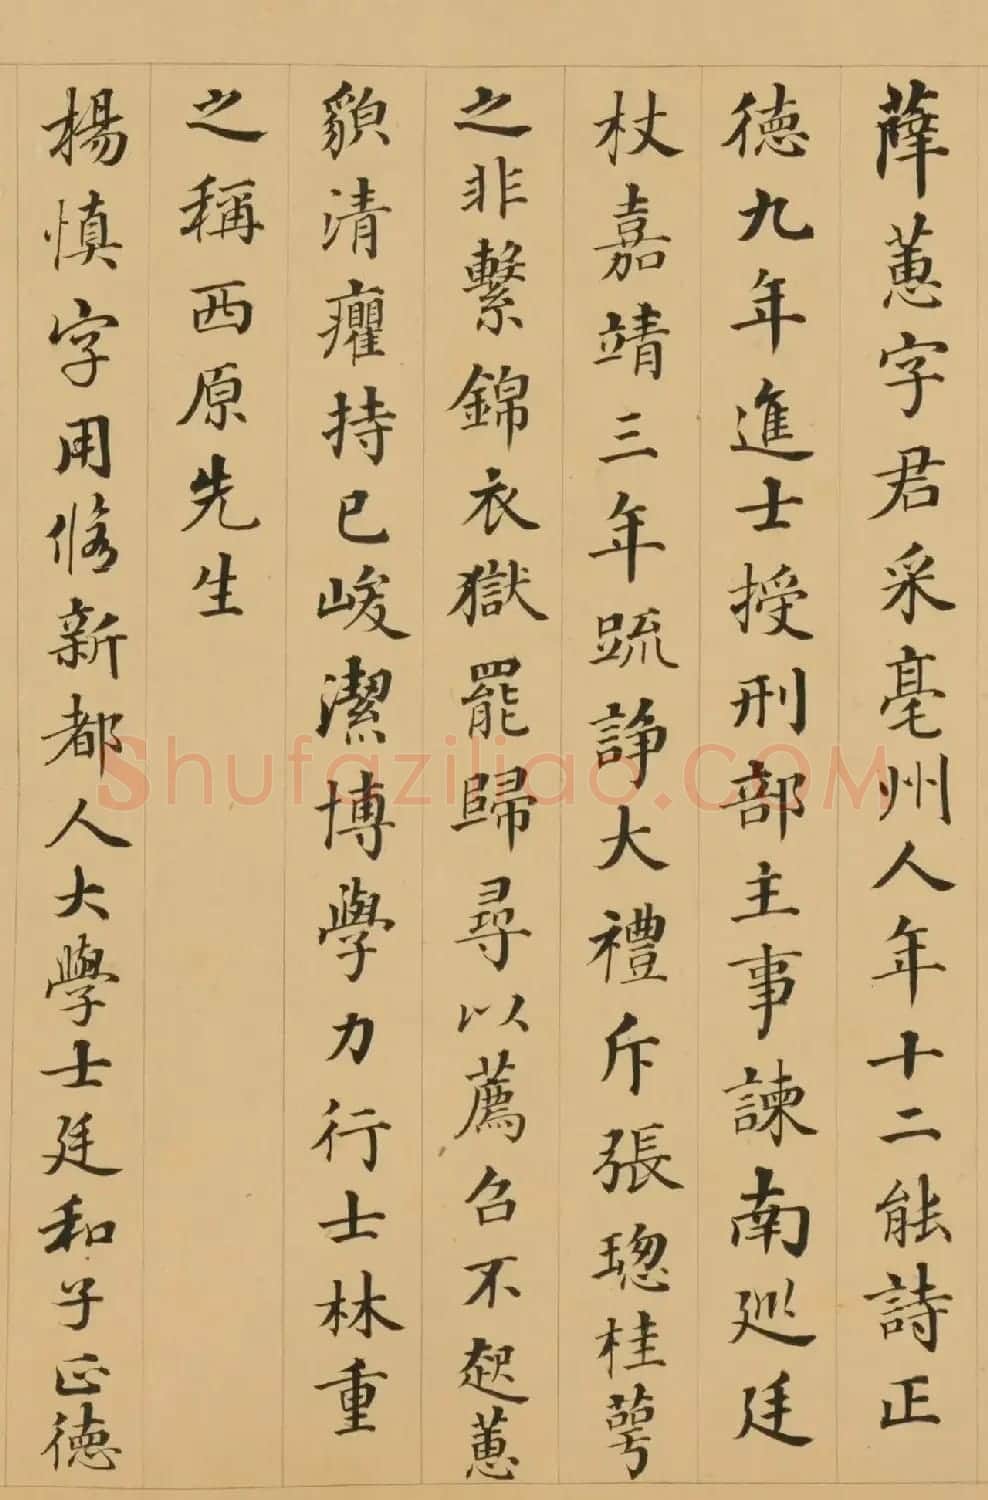 薛蕙字君采亳州人年十二能詩正
德九年進士授刑部主事諫南巡廷
杖嘉靖三年疏諍大禮斥張璁桂萼
之非繫錦衣獄罷歸尋以薦召不起蕙
貌清癯持己峻潔博學力行士林重
之稱西原先生
楊慎字用修新都人大學士廷和子正德
Shufaziliao.COM